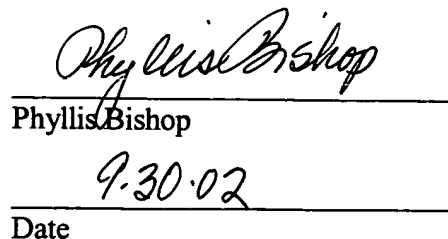 Phyllis Bishop
Phyllis Bishop
9.30.02
Date